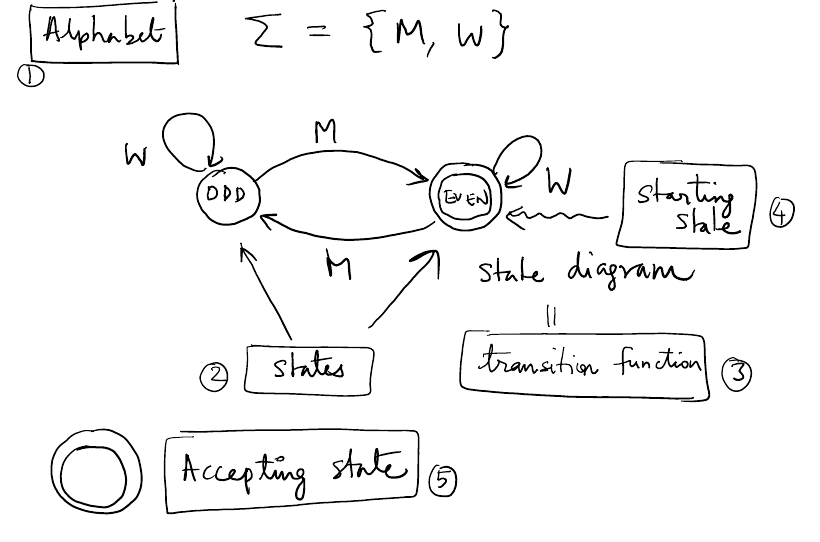 Alphabet Σ = {M, W}
①
M
W
W
ODD
EVEN
Starting
state
④
M
state diagram
=
② states
transition function ③
Accepting state ⑤